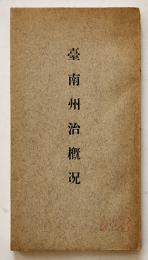 臺南州治概况